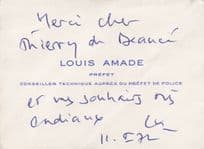 Merci cher
Thierry de Beaucé
LOUIS AMADE
PRÉFET
CONSEILLER TECHNIQUE AUPRÈS DU PRÉFET DE POLICE
et vos souhaits très
cordiaux
11.I.72